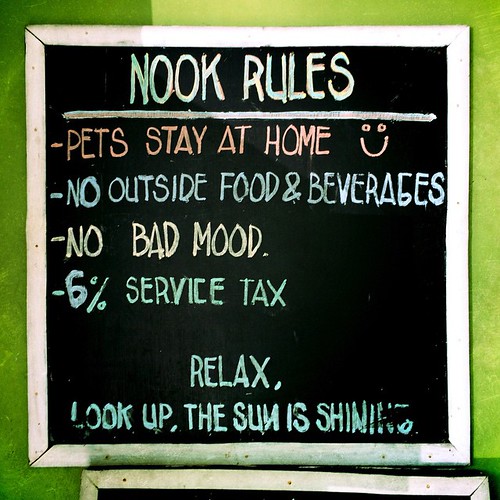 NOOK RULES
-PETS STAY AT HOME
-NO OUTSIDE FOOD & BEVERAGES
-NO BAD MOOD.
-6% SERVICE TAX
RELAX,
LOOK UP. THE SUN IS SHINING.